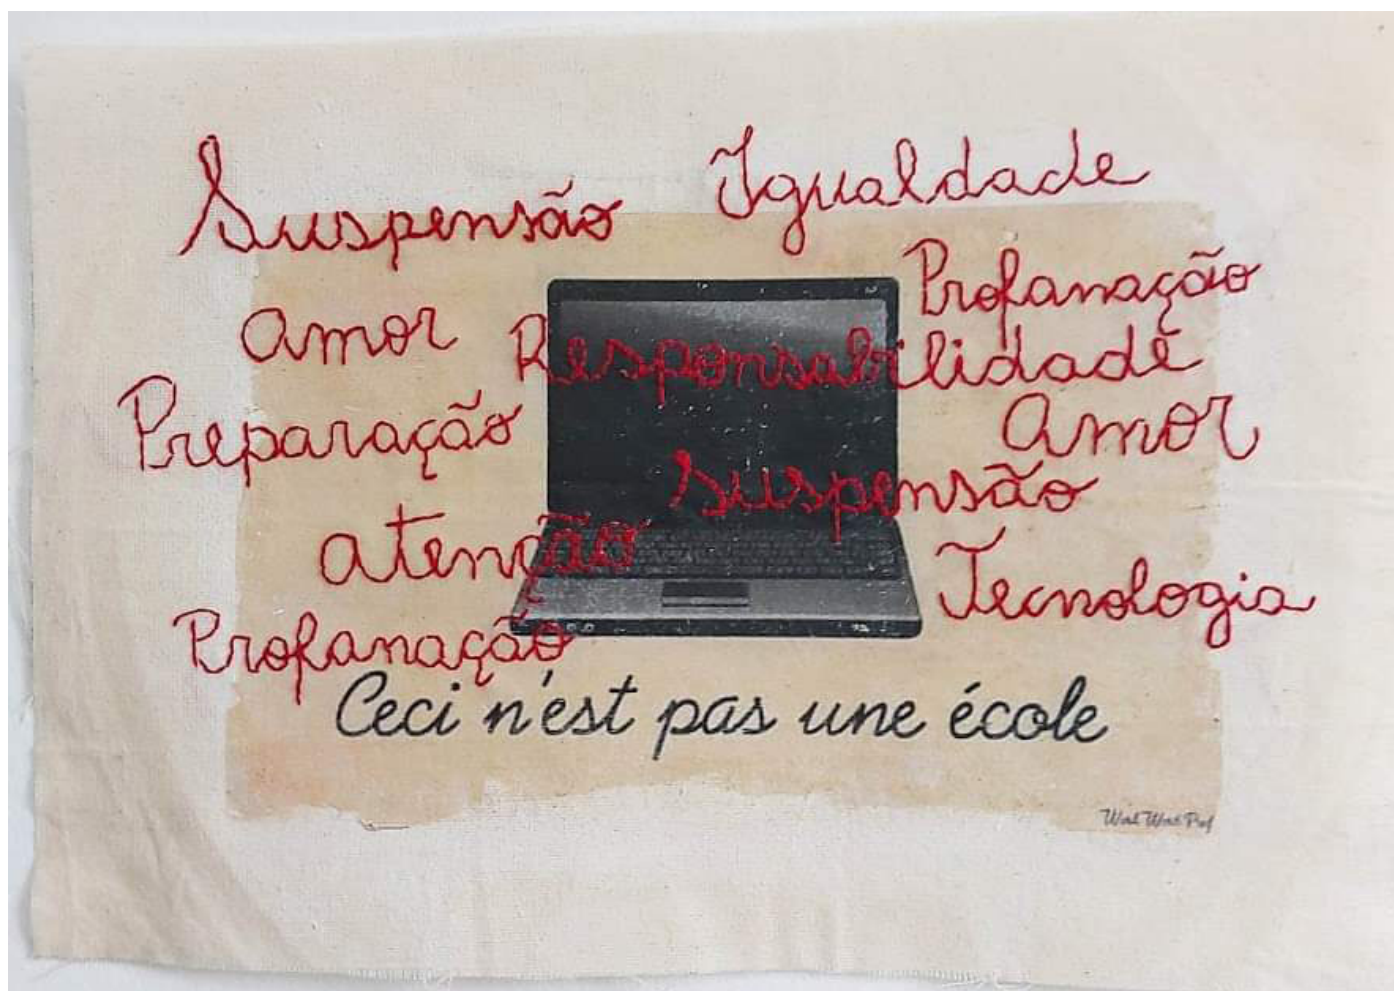 Suspensão
Igualdade
Profanação
Amor
Responsabilidade
Preparação
Amor
Suspensão
Atenção
Tecnologia
Profanação
Ceci n'est pas une école